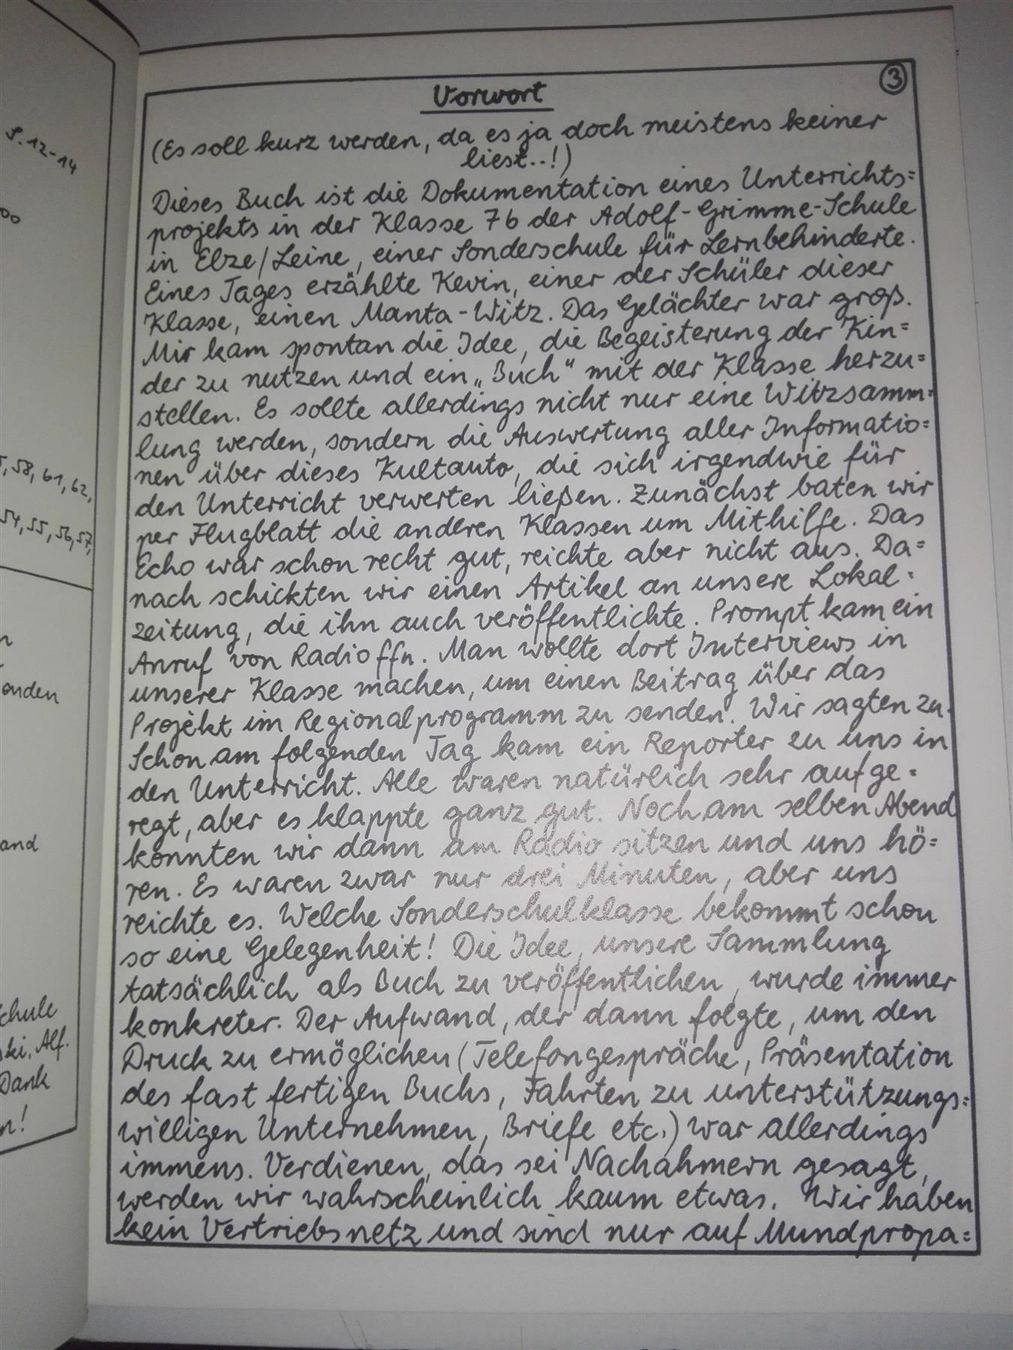 S. 12-14
58, 61, 62,
54, 55, 56, 57,
and
Dank
③
Vorwort
(Es soll kurz werden, da es ja doch meistens keiner
liest..!)
Dieses Buch ist die Dokumentation eines Unterrichts=
projekts in der Klasse 7b der Adolf-Grimme-Schule
in Elze/Leine, einer Sonderschule für Lernbehinderte.
Eines Tages erzählte Kevin, einer der Schüler dieser
Klasse, einen Manta-Witz. Das Gelächter war groß.
Mir kam spontan die Idee, die Begeisterung der Kin=
der zu nutzen und ein „Buch“ mit der Klasse herzu=
stellen. Es sollte allerdings nicht nur eine Witzsamm=
lung werden, sondern die Auswertung aller Informatio=
nen über dieses Kultauto, die sich irgendwie für
den Unterricht verwerten ließen. Zunächst baten wir
per Flugblatt die anderen Klassen um Mithilfe. Das
Echo war schon recht gut, reichte aber nicht aus. Da=
nach schickten wir einen Artikel an unsere Lokal=
zeitung, die ihn auch veröffentlichte. Prompt kam ein
Anruf von Radio ffn. Man wollte dort Interviews in
unserer Klasse machen, um einen Beitrag über das
Projekt im Regionalprogramm zu senden. Wir sagten zu.
Schon am folgenden Tag kam ein Reporter zu uns in
den Unterricht. Alle waren natürlich sehr aufge=
regt, aber es klappte ganz gut. Noch am selben Abend
konnten wir dann am Radio sitzen und uns hö=
ren. Es waren zwar nur drei Minuten, aber uns
reichte es. Welche Sonderschulklasse bekommt schon
so eine Gelegenheit! Die Idee, unsere Sammlung
tatsächlich als Buch zu veröffentlichen, wurde immer
konkreter. Der Aufwand, der dann folgte, um den
Druck zu ermöglichen (Telefongespräche, Präsentation
des fast fertigen Buchs, Fahrten zu unterstützungs=
willigen Unternehmen, Briefe etc.) war allerdings
immens. Verdienen, das sei Nachahmern gesagt,
werden wir wahrscheinlich kaum etwas. Wir haben
kein Vertriebsnetz und sind nur auf Mundpropa=